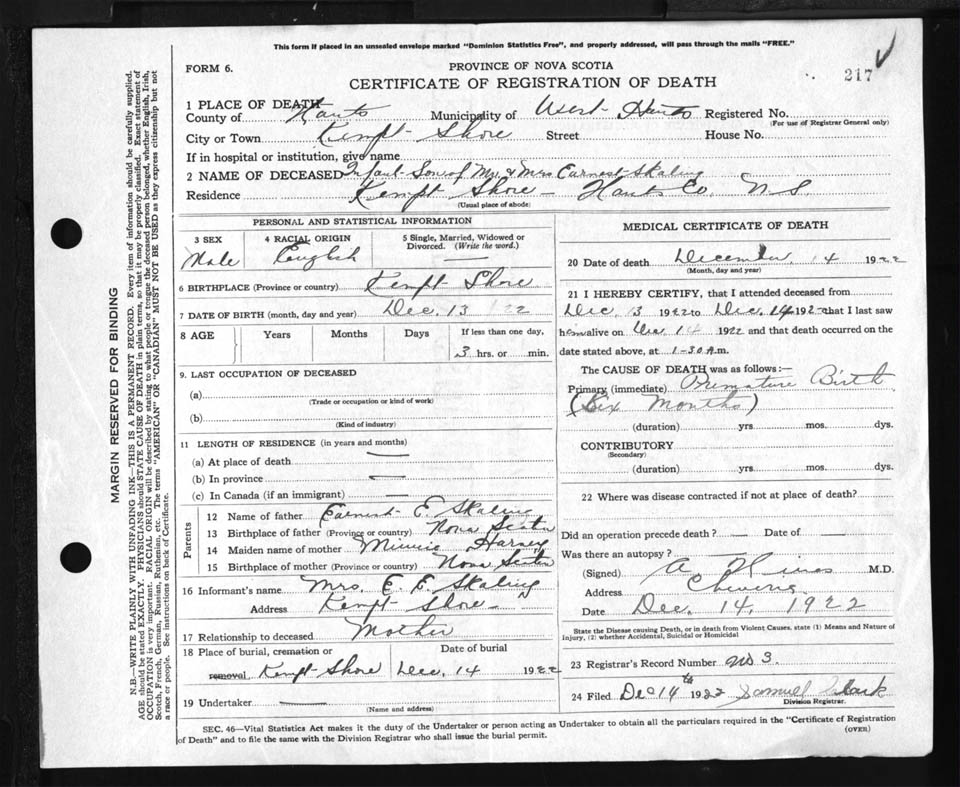 This form if placed in an unsealed envelope marked "Dominion Statistics Free", and properly addressed, will pass through the mails "FREE."
FORM 6.
PROVINCE OF NOVA SCOTIA
CERTIFICATE OF REGISTRATION OF DEATH
217
MARGIN RESERVED FOR BINDING
N.B.—WRITE PLAINLY WITH UNFADING INK—THIS IS A PERMANENT RECORD. Every item of information should be carefully supplied.
AGE should be stated EXACTLY. PHYSICIANS should STATE CAUSE OF DEATH in plain terms, so that it may be properly classified. Exact statement of
OCCUPATION is very important. RACIAL ORIGIN will be described by stating to what people or tongue the deceased person belonged, whether English, Irish,
Scotch, French, German, Russian, Ruthenian, etc. The terms "AMERICAN" OR "CANADIAN" MUST NOT BE USED as they express citizenship but not
a race or people. See instructions on back of Certificate.
1 PLACE OF DEATH
County of Hants Municipality of West Hants Registered No.
(For use of Registrar General only)
City or Town Kempt Shore Street House No.
If in hospital or institution, give name
2 NAME OF DECEASED Infant Son of Mr. & Mrs Earnest Skaling
Residence Kempt Shore — Hants Co. N S
(Usual place of abode)
PERSONAL AND STATISTICAL INFORMATION
3 SEX 4 RACIAL ORIGIN 5 Single, Married, Widowed or
Divorced. (Write the word.)
Male English —
6 BIRTHPLACE (Province or country) Kempt Shore
7 DATE OF BIRTH (month, day and year) Dec. 13 22
8 AGE Years Months Days If less than one day,
3 hrs. or min.
9. LAST OCCUPATION OF DECEASED
(a)
(Trade or occupation or kind of work)
(b)
(Kind of industry)
11 LENGTH OF RESIDENCE (in years and months)
(a) At place of death —
(b) In province —
(c) In Canada (if an immigrant) —
Parents
12 Name of father Earnest E. Skaling
13 Birthplace of father (Province or country) Nova Scotia
14 Maiden name of mother Minnie Harvey
15 Birthplace of mother (Province or country) Nova Scotia
16 Informant's name Mrs. E. E. Skaling
Address Kempt Shore
17 Relationship to deceased Mother
18 Place of burial, cremation or Date of burial
removal Kempt Shore Dec. 14 1922
19 Undertaker —
(Name and address)
MEDICAL CERTIFICATE OF DEATH
20 Date of death December 14 1922
(Month, day and year)
21 I HEREBY CERTIFY, that I attended deceased from
Dec. 13 1922 to Dec. 14 1922 that I last saw
him alive on Dec 14 1922 and that death occurred on the
date stated above, at 1-30 A.m.
The CAUSE OF DEATH was as follows:—
Primary (immediate) Premature Birth
(Six Months)
(duration) yrs. mos. dys.
CONTRIBUTORY
(Secondary)
(duration) yrs. mos. dys.
22 Where was disease contracted if not at place of death?
Did an operation precede death? — Date of —
Was there an autopsy? —
(Signed) A M.D.
Address
Date Dec. 14, 1922
State the Disease causing Death, or in death from Violent Causes, state (1) Means and Nature of
Injury, (2) whether Accidental, Suicidal or Homicidal
23 Registrar's Record Number No 3.
24 Filed Dec 14th 1922 Samuel
Division Registrar.
SEC. 46—Vital Statistics Act makes it the duty of the Undertaker or person acting as Undertaker to obtain all the particulars required in the "Certificate of Registration
of Death" and to file the same with the Division Registrar who shall issue the burial permit.
(OVER)